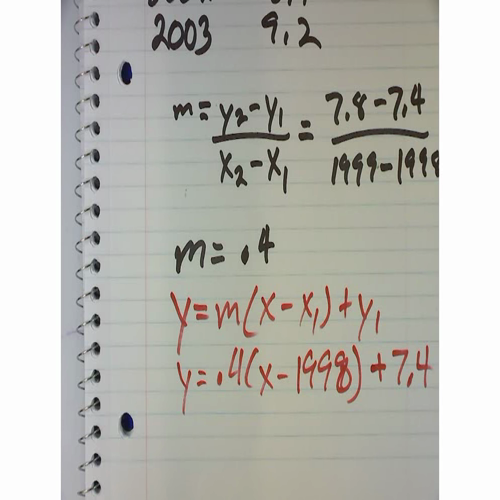 2003 9.2
m = y₂-y₁ / x₂-x₁ = 7.8-7.4 / 1999-1998
m = .4
y = m(x-x₁)+y₁
y = .4(x-1998)+7.4